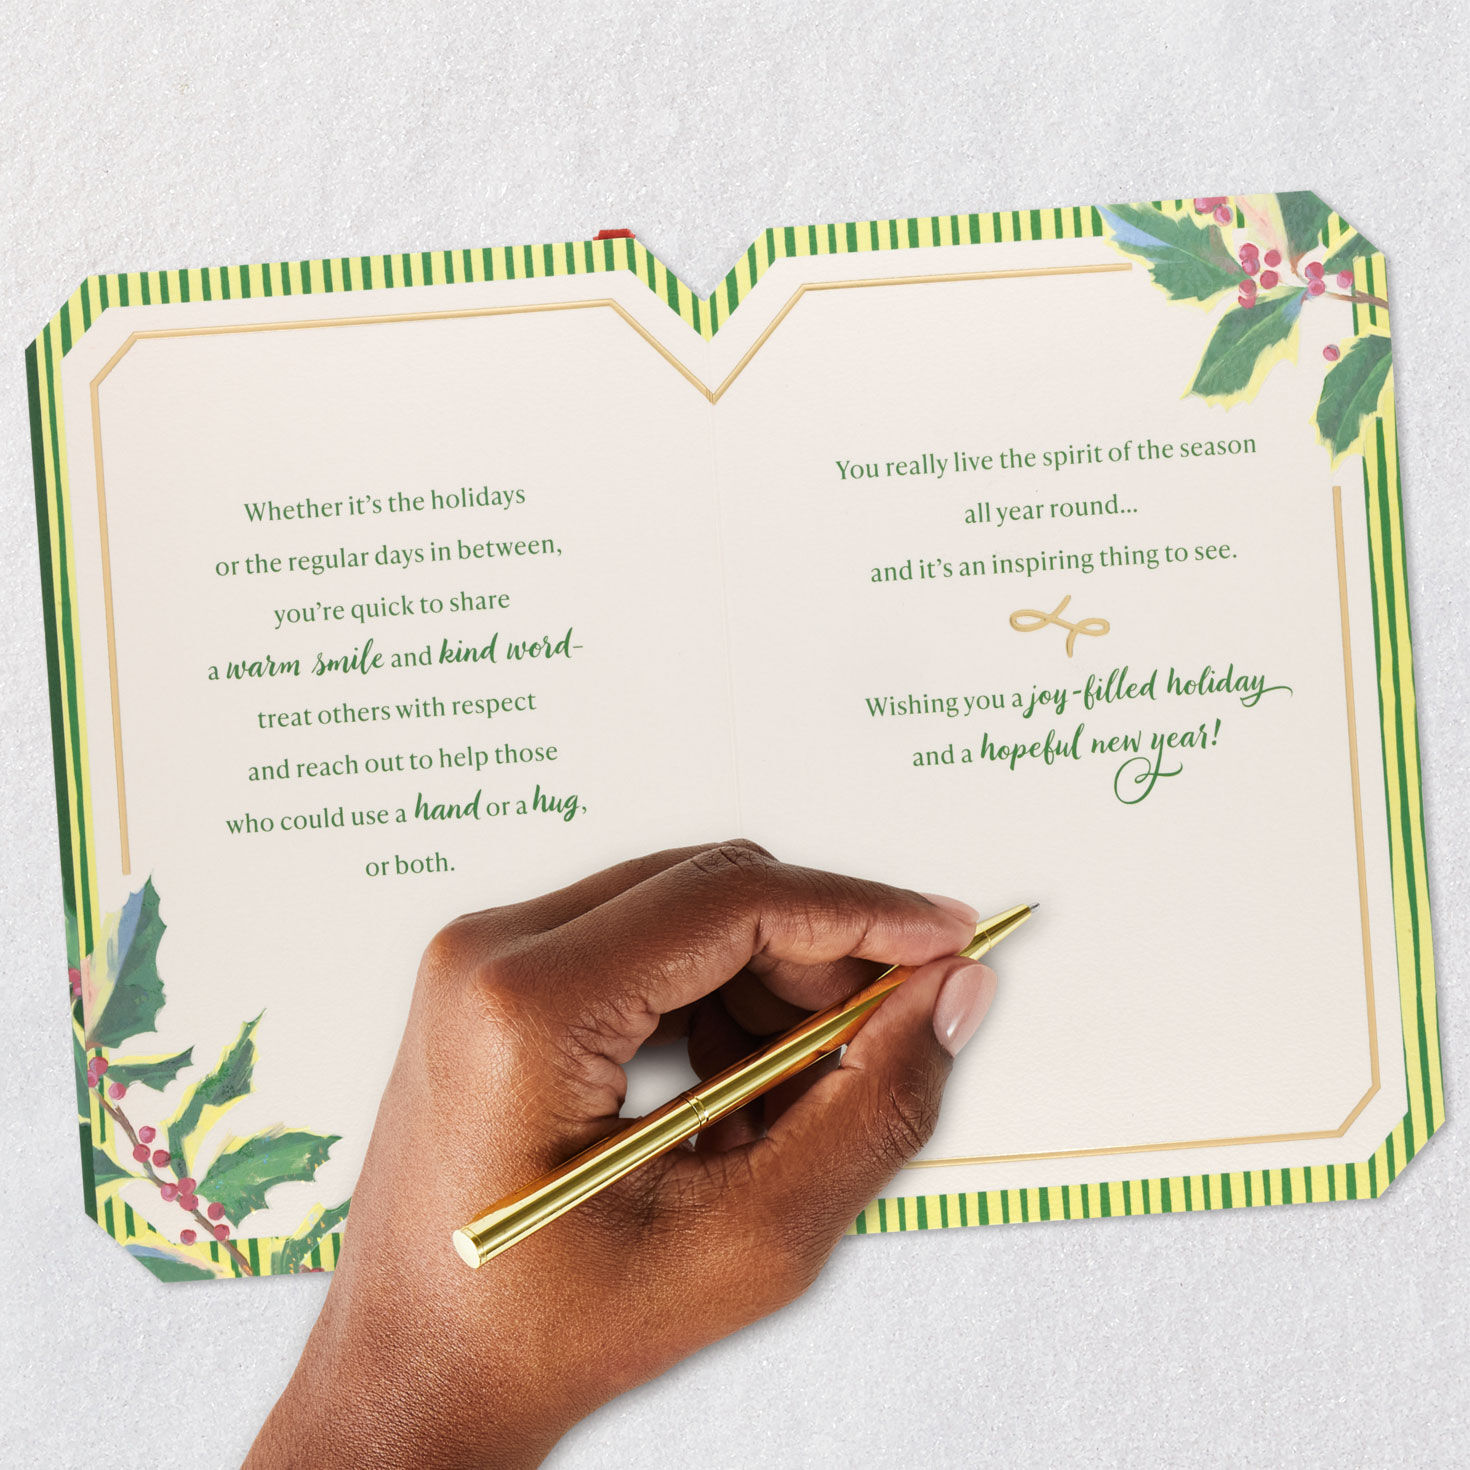 Whether it's the holidays
or the regular days in between,
you're quick to share
a warm smile and kind word–
treat others with respect
and reach out to help those
who could use a hand or a hug,
or both.
You really live the spirit of the season
all year round...
and it's an inspiring thing to see.
Wishing you a joy-filled holiday
and a hopeful new year!